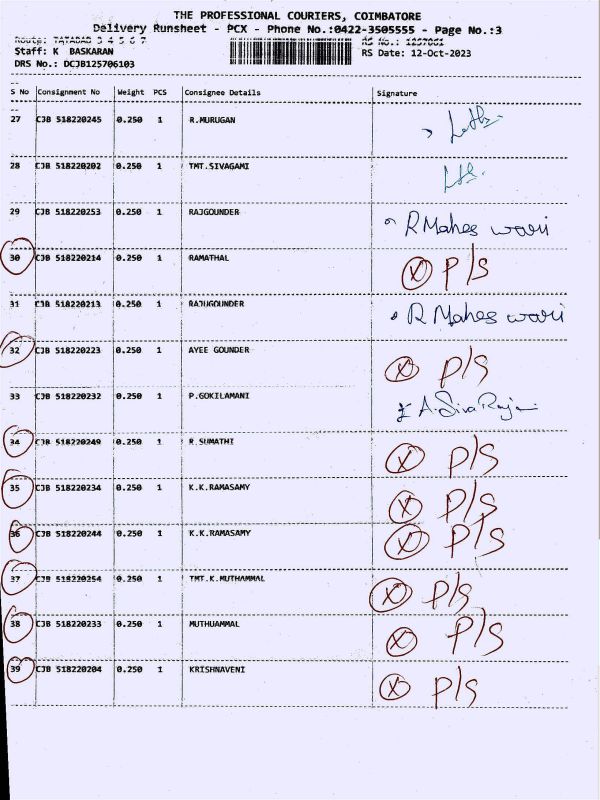 THE PROFESSIONAL COURIERS, COIMBATORE
Delivery Runsheet - PCX - Phone No.:0422-3505555 - Page No.:3
Route: TATABAD 3 4 5 6 7 RS No.: 1257061
Staff: K BASKARAN RS Date: 12-Oct-2023
DRS No.: DCJB125706103
S No Consignment No Weight PCS Consignee Details Signature
27 CJB 518220245 0.250 1 R.MURUGAN
28 CJB 518220202 0.250 1 TMT.SIVAGAMI
29 CJB 518220253 0.250 1 RAJGOUNDER R Maheswari
30 CJB 518220214 0.250 1 RAMATHAL X P/S
31 CJB 518220213 0.250 1 RAJUGOUNDER R Maheswari
32 CJB 518220223 0.250 1 AYEE GOUNDER X P/S
33 CJB 518220232 0.250 1 P.GOKILAMANI A.Siva Ranjani
34 CJB 518220249 0.250 1 R.SUMATHI X P/S
35 CJB 518220234 0.250 1 K.K.RAMASAMY X P/S
36 CJB 518220244 0.250 1 K.K.RAMASAMY X P/S
37 CJB 518220254 0.250 1 TMT.K.MUTHAMMAL X P/S
38 CJB 518220233 0.250 1 MUTHUAMMAL X P/S
39 CJB 518220204 0.250 1 KRISHNAVENI X P/S